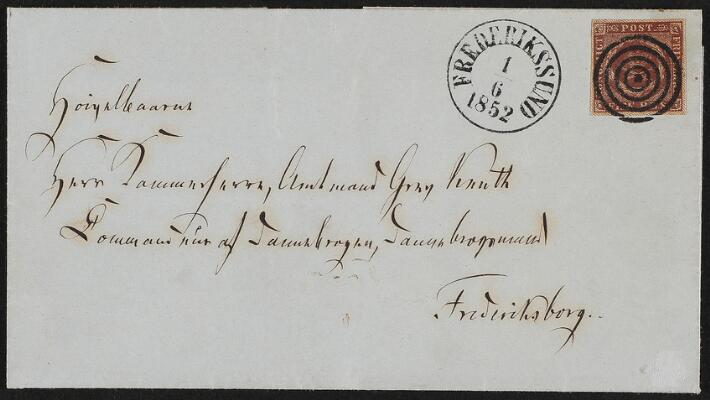 FREDERIKSSUND
1
6
1852
POST
Höivelbaarne
Herr Kammerherre, Amtmand Grev Knuth
Commandeur af Dannebrogen, Dannebrogsmand
Frederiksborg.